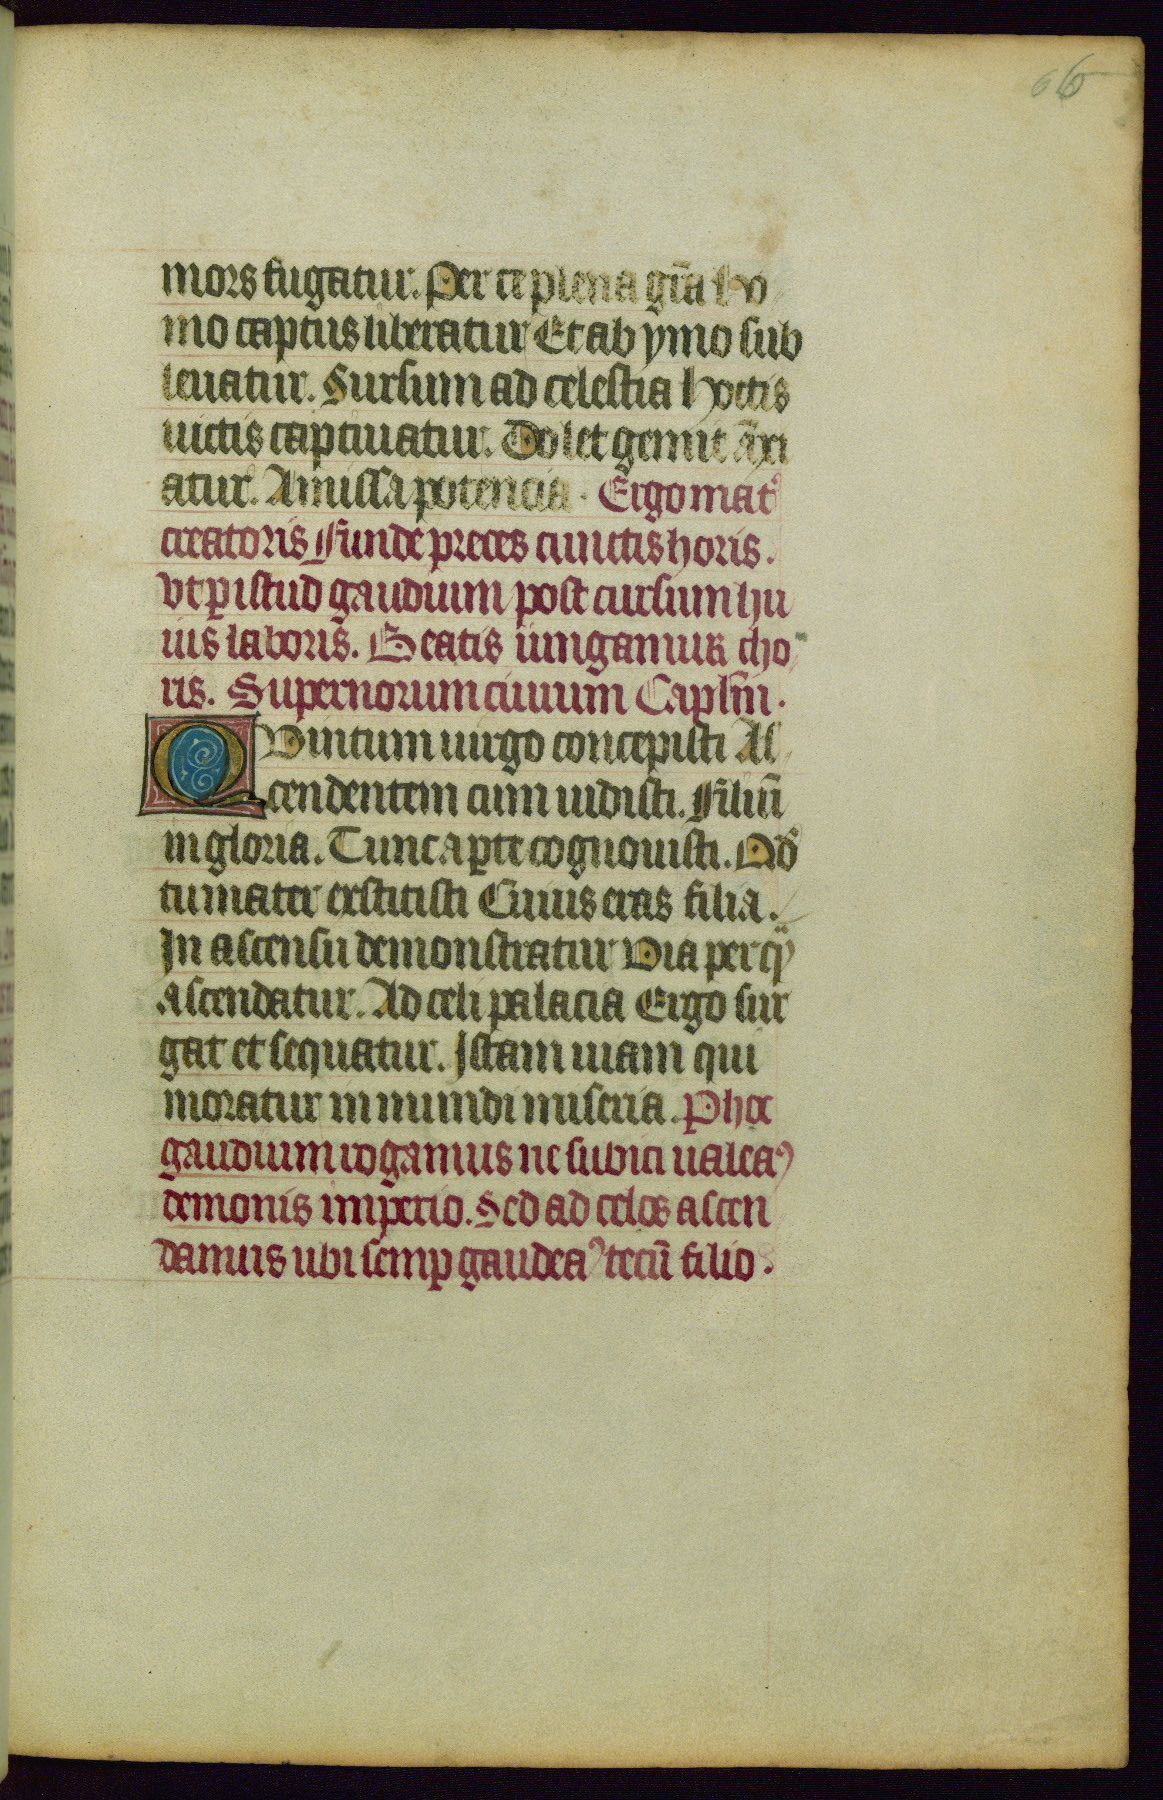 66
mors fugatur. Per te plena gr̄a ho
mo captus liberatur Et ab ymo sub
leuatur. Sursum ad celestia hostis
uictis captiuatur. Dolet gemit āxi
atur. Amissa potencia. Ergo mat᷒
creatoris Funde preces cunctis horis.
Vt ꝑ istud gaudium post cursum hu
ius laboris. Beatis iungamur cho
ris. Supernorum ciuium Caplm̄.
QVintum uirgo concepisti As
cendentem cum uidisti. Filiū
in gloria. Tunc aꝑte cognouisti. Qd᷒
tu mater exstitisti Cuius eras filia.
In ascensu demonstratur Via per qͥ
ascendatur. Ad celi palacia Ergo sur
gat et sequatur. Istam uiam qui
moratur in mundi miseria. P hoc
gaudium rogamus ne subici ualeaꝰ
demonis imperio. Sed ad celos ascen
damus ubi semꝑ gaudeaꝰ tecū filio.